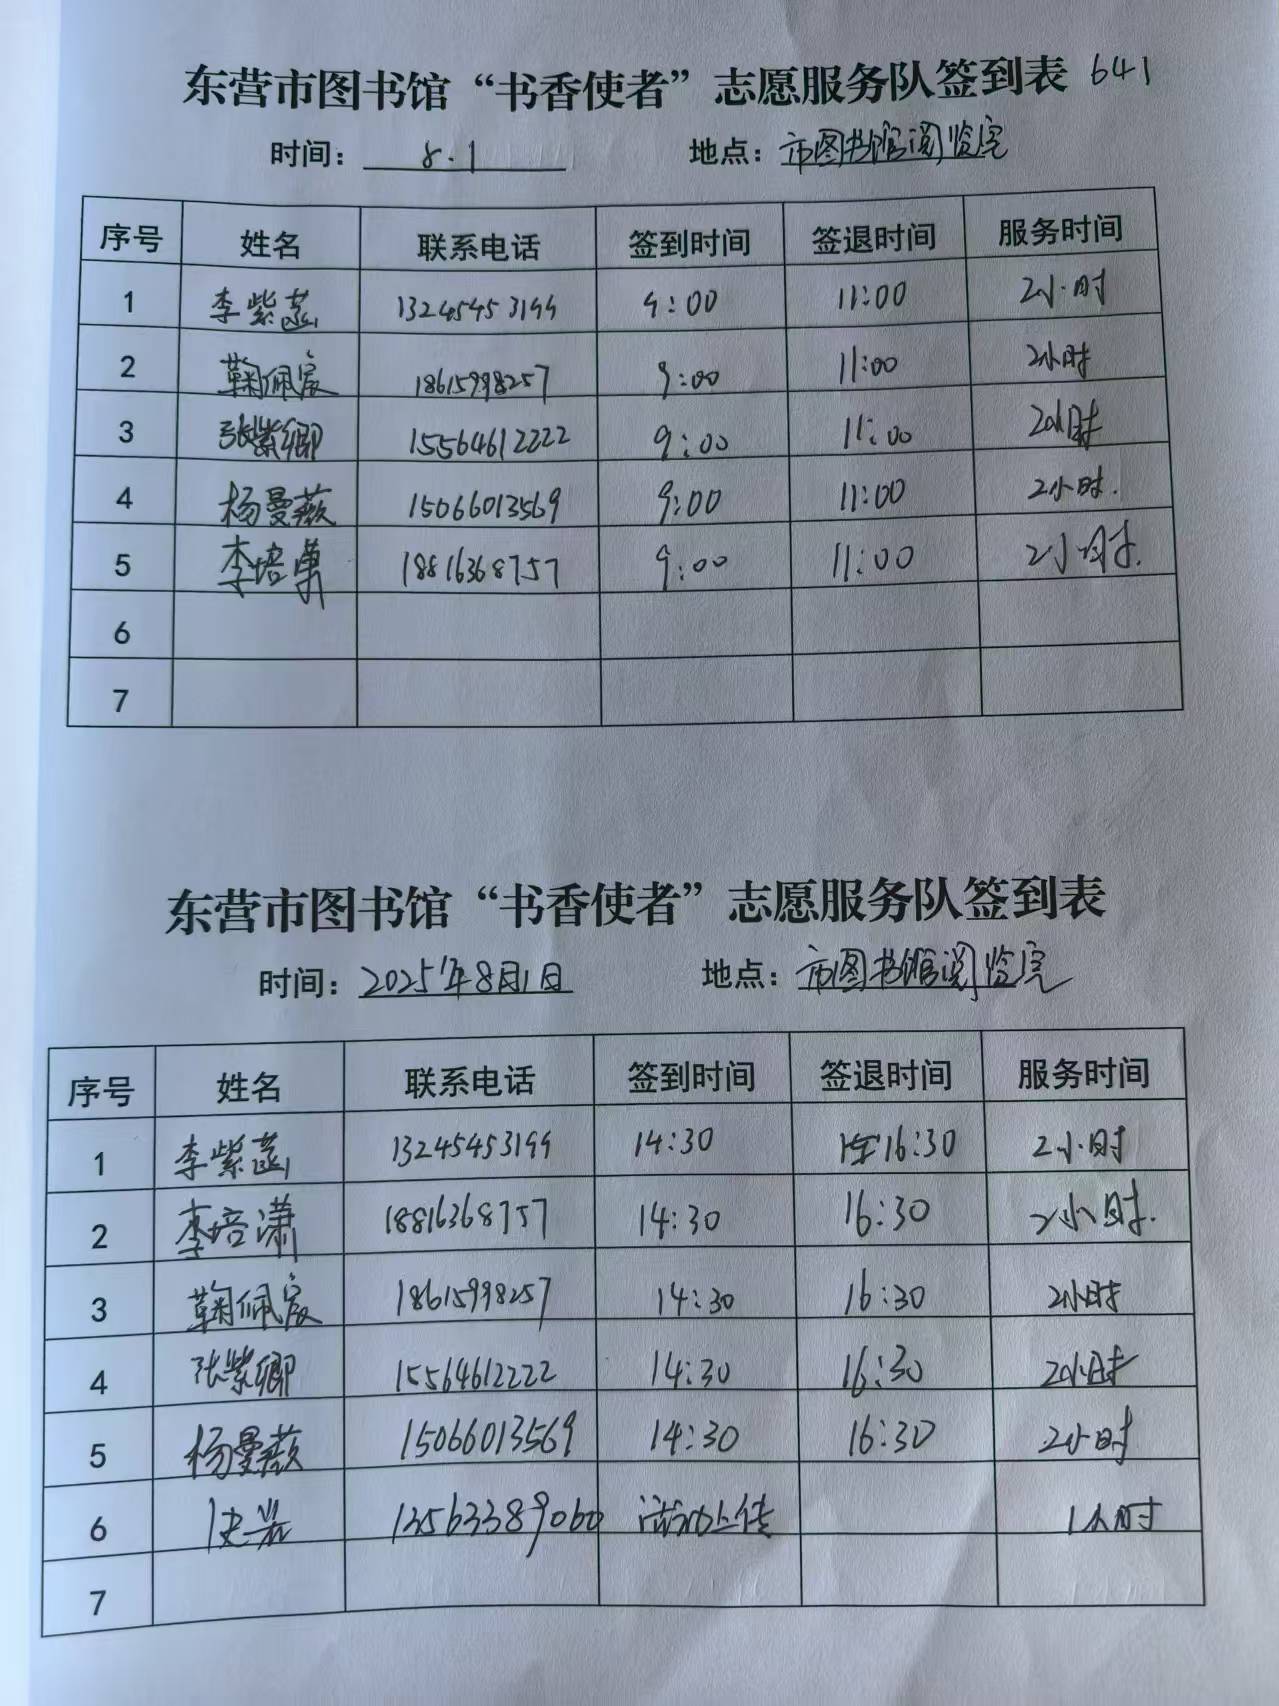 东营市图书馆“书香使者”志愿服务队签到表 641
时间: 8.1 地点: 市图书馆阅览室
序号 姓名 联系电话 签到时间 签退时间 服务时间
1 李紫菡 13245453199 9:00 11:00 2小时
2 鞠佩宸 18615998257 9:00 11:00 2小时
3 张紫卿 15564612222 9:00 11:00 2小时
4 杨曼薇 15066013569 9:00 11:00 2小时.
5 李培潇 18816368757 9:00 11:00 2小时.
6
7
东营市图书馆“书香使者”志愿服务队签到表
时间: 2025年8月1日 地点: 市图书馆阅览室
序号 姓名 联系电话 签到时间 签退时间 服务时间
1 李紫菡 13245453199 14:30 16:30 2小时
2 李培潇 18816368757 14:30 16:30 2小时.
3 鞠佩宸 18615998257 14:30 16:30 2小时
4 张紫卿 15564612222 14:30 16:30 2小时
5 杨曼薇 15066013569 14:30 16:30 2小时
6 13563389060 活动上传 1小时
7